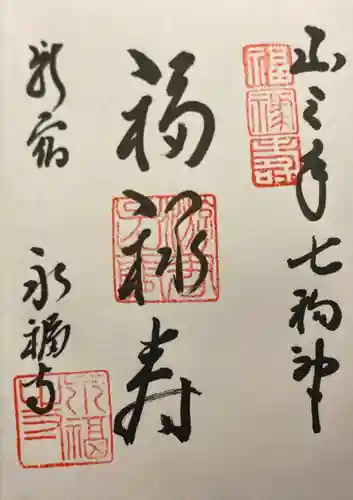 山之手七福神
福禄寿
福禄寿
新宿
永福寺